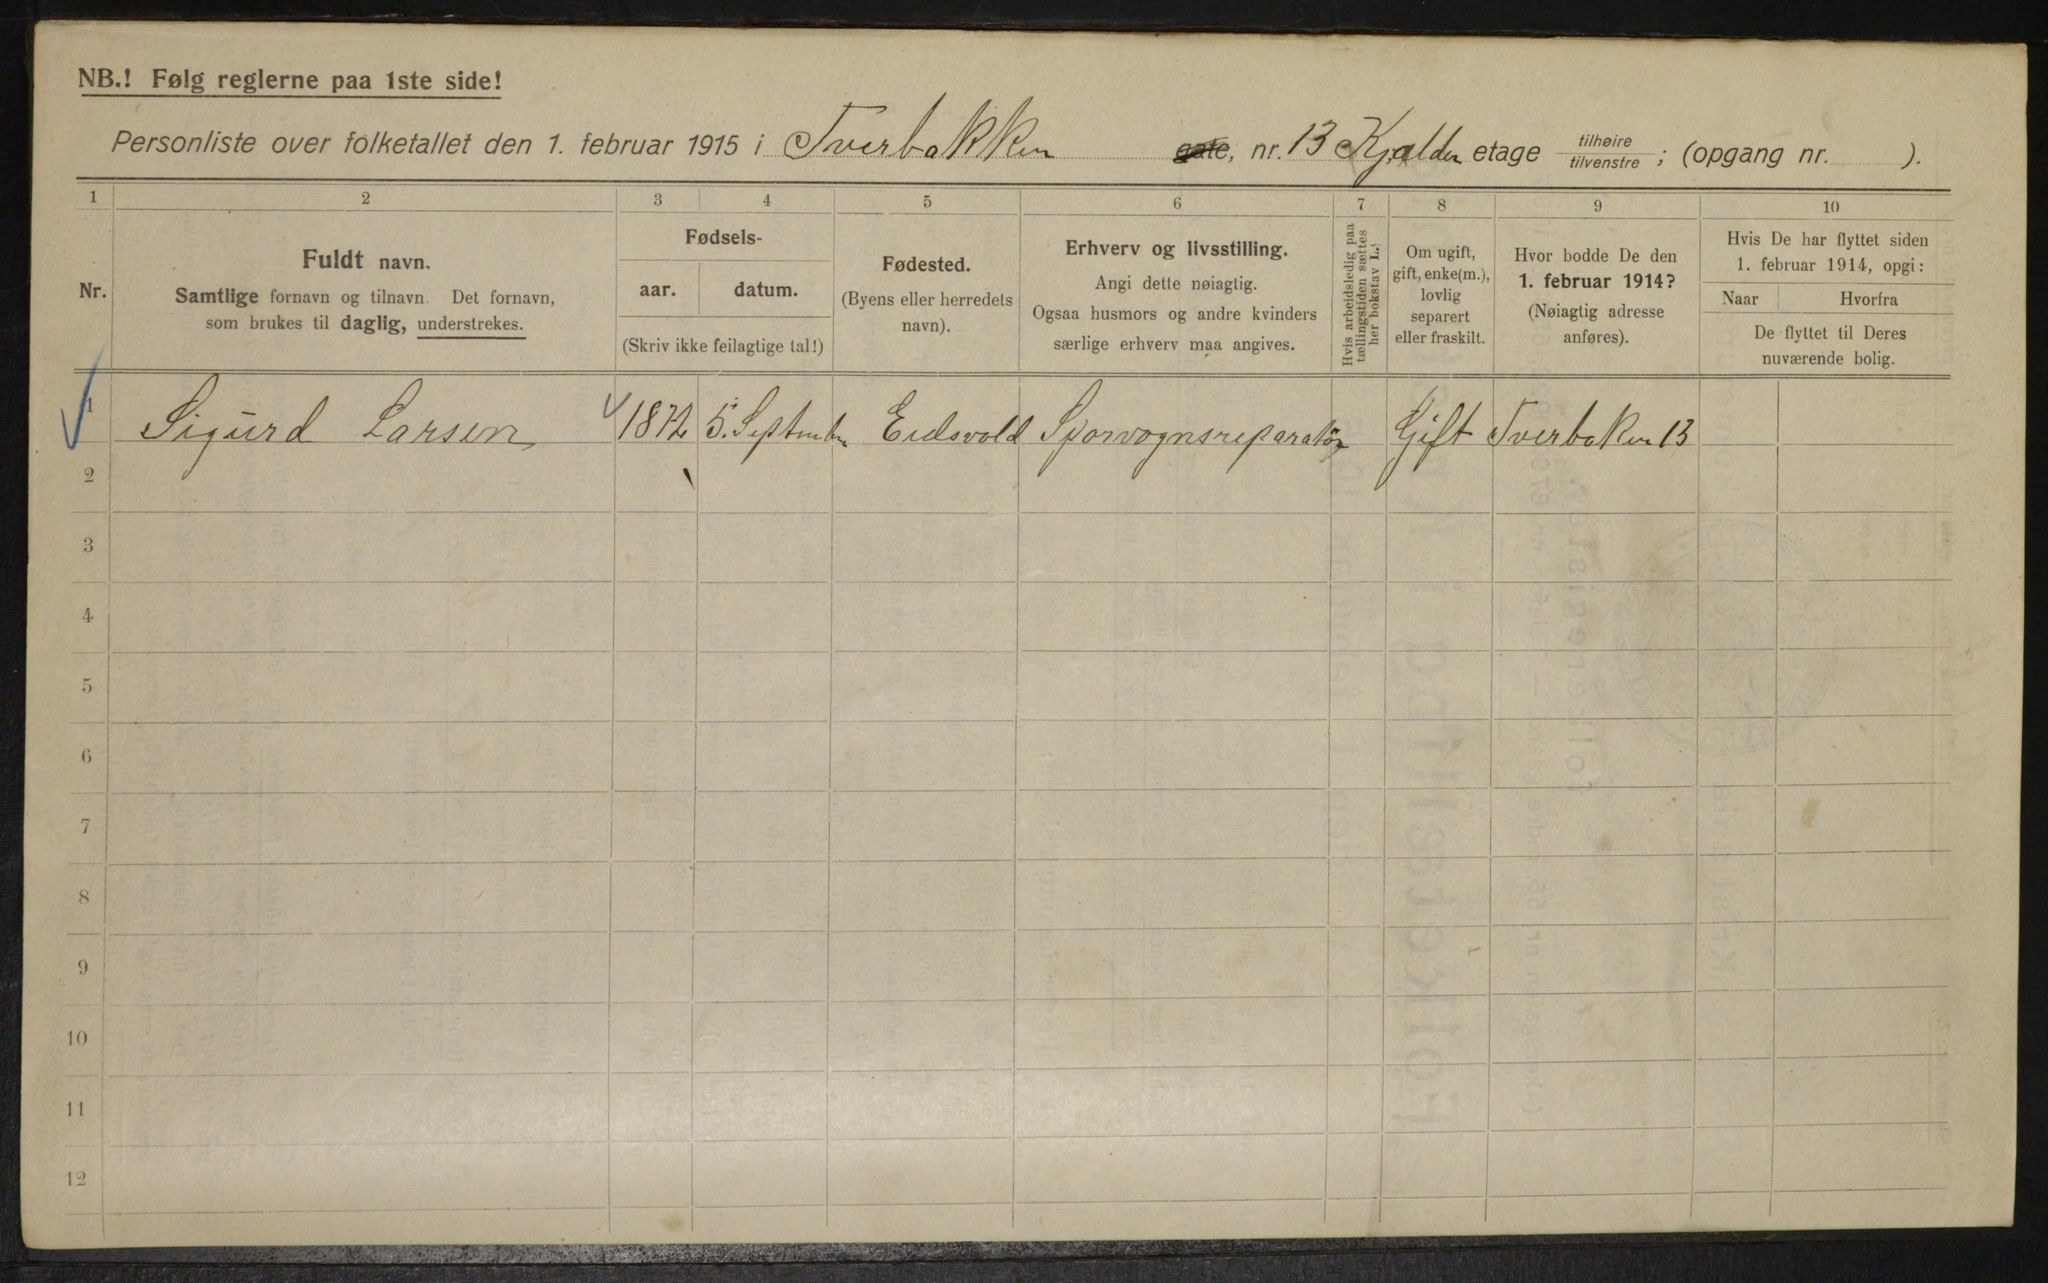 NB.! Følg reglerne paa 1ste side!
Personliste over folketallet den 1. februar 1915 i Tverbakken gate, nr. 13 Kjælder etage tilhøire / tilvenstre ; (opgang nr. ).
1 2 3 4 5 6 7 8 9 10
Nr.
Fuldt navn.
Samtlige fornavn og tilnavn. Det fornavn,
som brukes til daglig, understrekes.
Fødsels-
aar. datum.
(Skriv ikke feilagtige tal!)
Fødested.
(Byens eller herredets
navn).
Erhverv og livsstilling.
Angi dette nøiagtig.
Ogsaa husmors og andre kvinders
særlige erhverv maa angives.
Hvis arbeidsledig paa
tællingstiden sættes
her bokstav L.!
Om ugift,
gift, enke(m.),
lovlig
separert
eller fraskilt.
Hvor bodde De den
1. februar 1914?
(Nøiagtig adresse
anføres).
Hvis De har flyttet siden
1. februar 1914, opgi:
Naar Hvorfra
De flyttet til Deres
nuværende bolig.
1 Sigurd Larsen 1872 5. September Eidsvold Sporvognsreparatør Gift Tverbaken 13
2
3
4
5
6
7
8
9
10
11
12